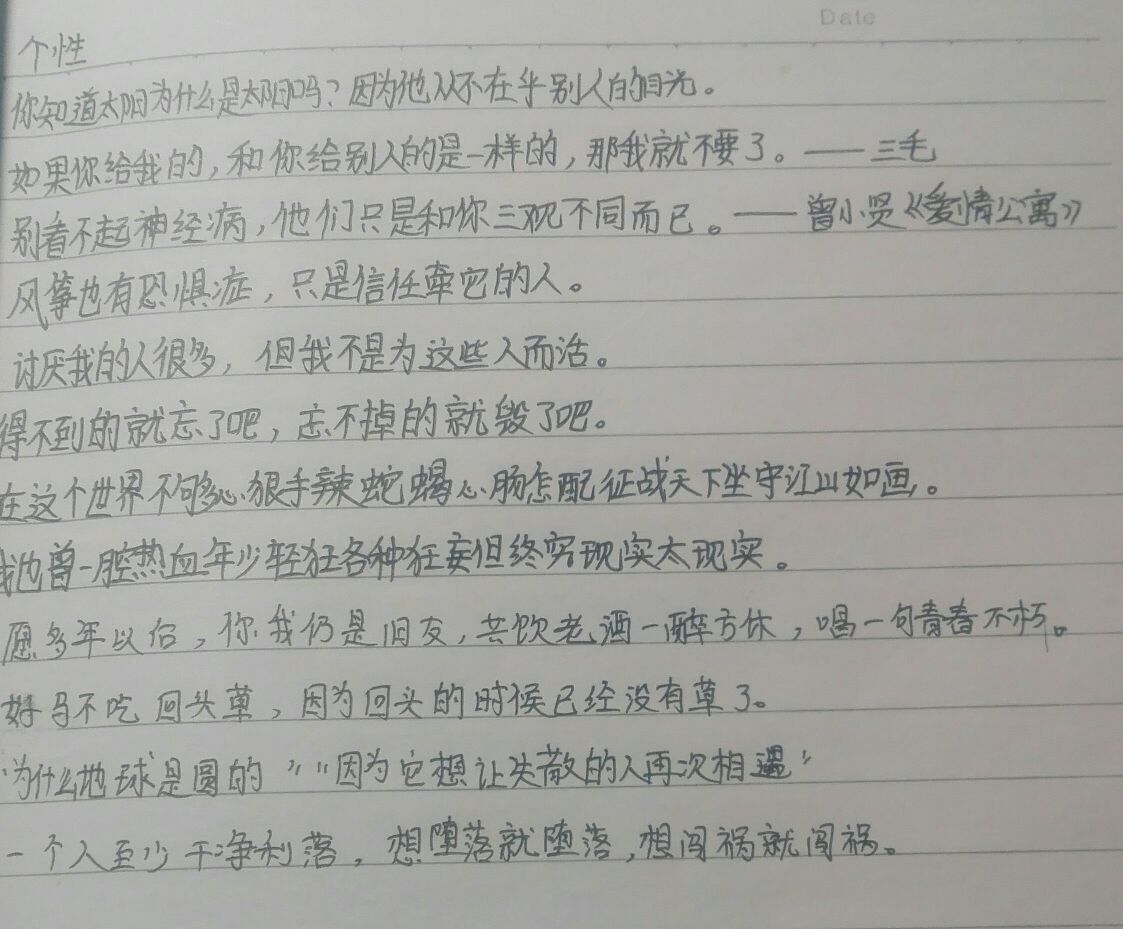 Date
个性
你知道太阳为什么是太阳吗？因为他从不在乎别人的目光。
如果你给我的，和你给别人的是一样的，那我就不要了。——三毛
别看不起神经病，他们只是和你三观不同而已。——曾小贤《爱情公寓》
风筝也有恐惧症，只是信任牵它的人。
讨厌我的人很多，但我不是为这些人而活。
得不到的就忘了吧，忘不掉的就毁了吧。
在这个世界不够心狠手辣蛇蝎心肠怎配征战天下坐守江山如画。
我也曾一腔热血年少轻狂各种狂妄但终究现实太现实。
愿多年以后，你我仍是旧友，共饮老酒一醉方休，喝一句青春不朽。
好马不吃回头草，因为回头的时候已经没有草了。
"为什么地球是圆的""因为它想让失散的人再次相遇"
一个人至少干净利落，想堕落就堕落，想闯祸就闯祸。